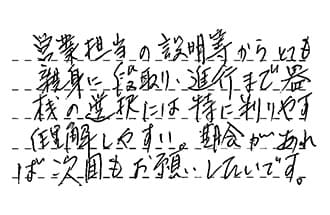 営業担当の説明等からとても
親身に段取り、進行まで器
械の選択には特に判りやす
く理解しやすい。機会があれ
ば次回もお願いしたいです。